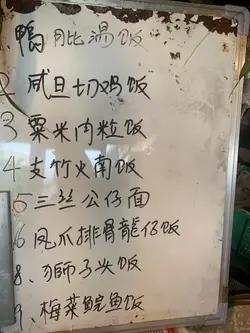 鴨髀湯饭
2 咸旦切鸡饭
3 粟米肉粒饭
4 支竹火南饭
5 三丝公仔面
6 凤爪排骨龍仔饭
8、獅子头饭
9、梅菜鲩鱼饭